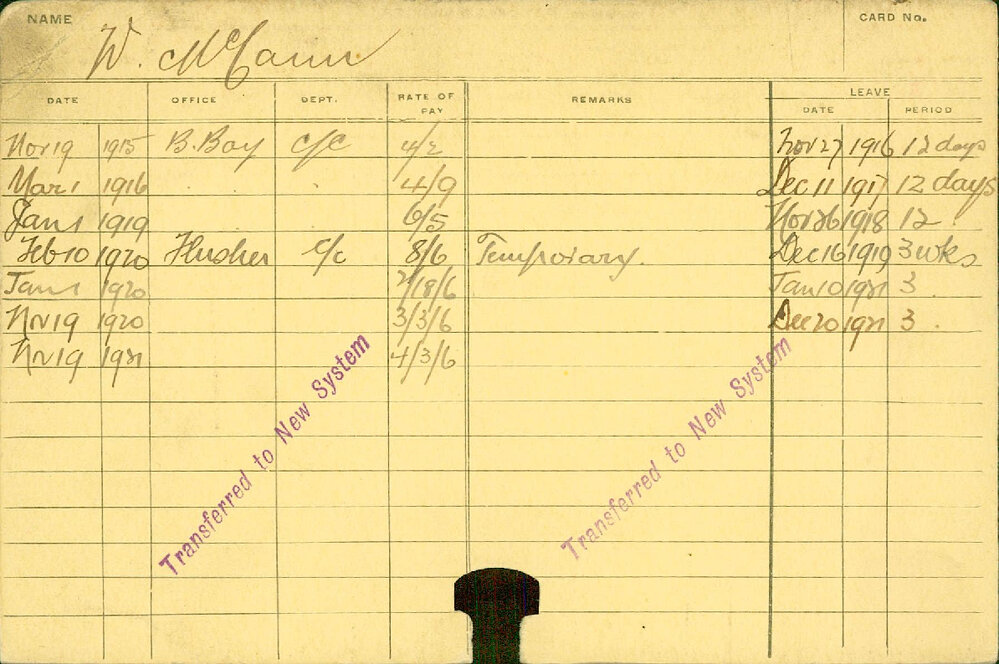 NAME W. McCann CARD No.
DATE OFFICE DEPT. RATE OF PAY REMARKS LEAVE
DATE PERIOD
Nov 19 1915 B. Bay C/C 4/2 Nov 27 1916 12 days
Mar 1 1916 4/9 Dec 11 1917 12 days
Jan 1 1919 6/5 Nov 26 1918 12
Feb 10 1920 Flusher C/C 8/6 Temporary. Dec 16 1919 3 wks
Jan 1 1920 2/18/6 Jan 10 1921 3
Nv 19 1920 3/3/6 Dec 20 1921 3.
Nv 19 1921 4/3/6
Transferred to New System
Transferred to New System